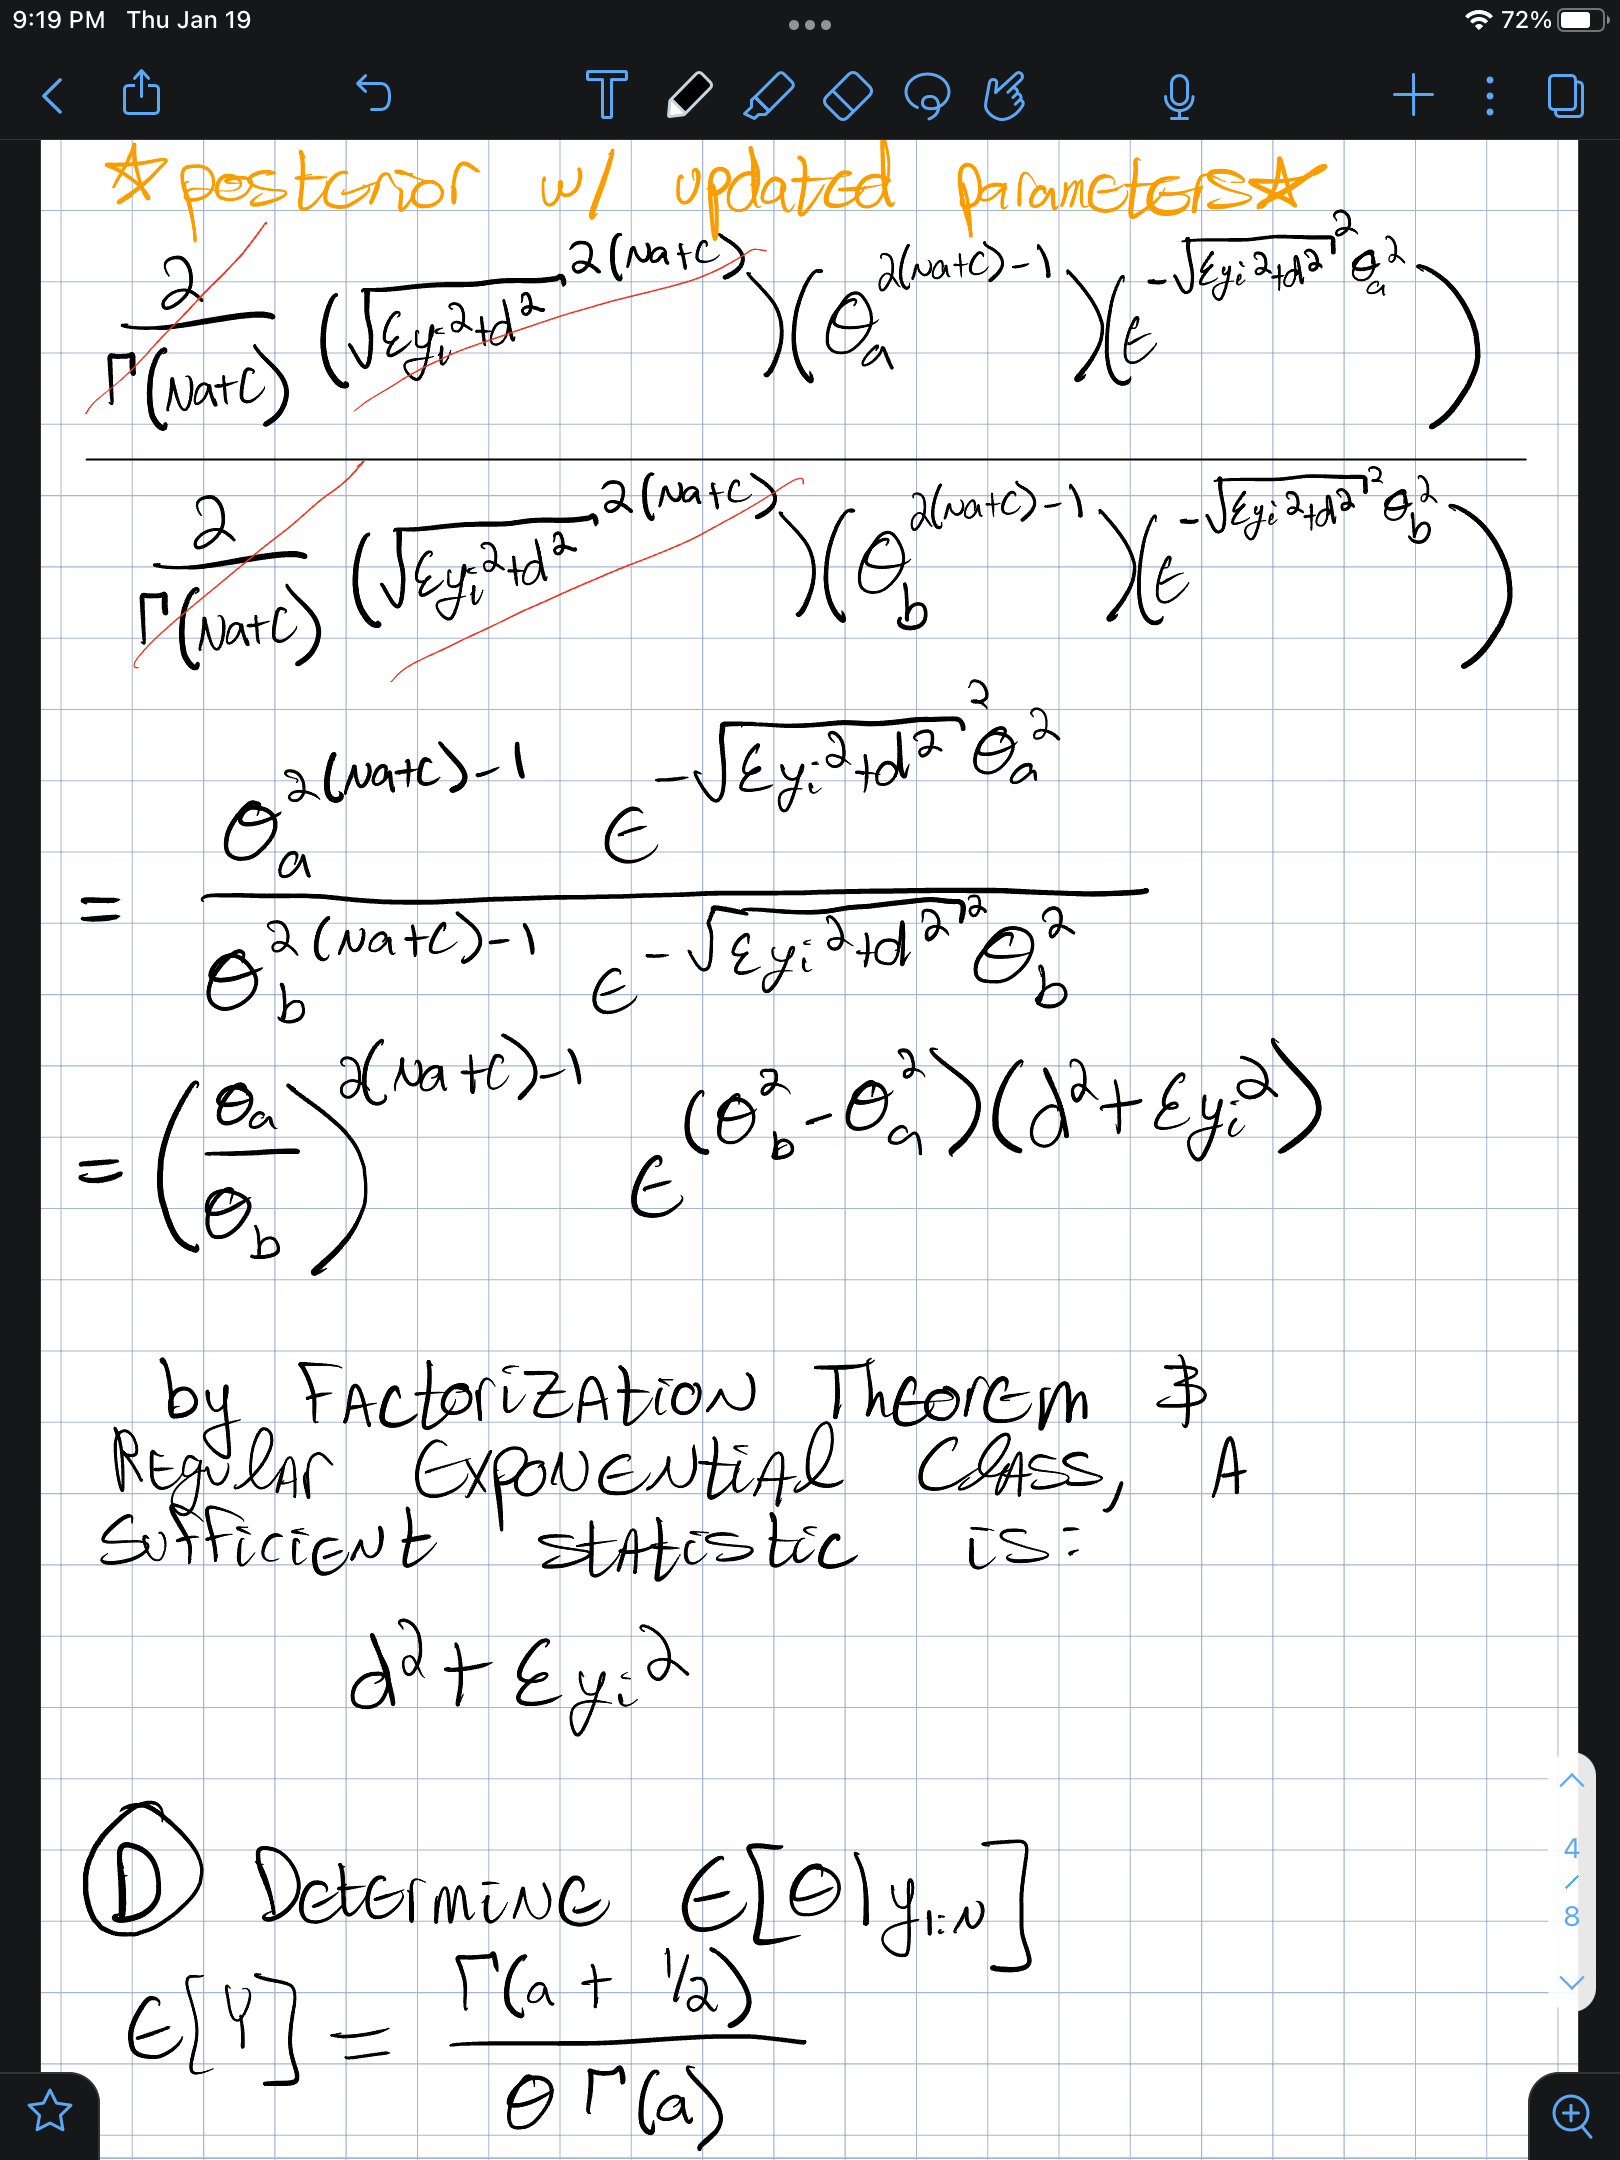 9:19 PM Thu Jan 19
72%
☆posterior w/ updated parameters☆
2/Γ(Na+C) (√(Σyi²+d²)^2(Na+C)) (θa^2(Na+C)-1) (e^-√(Σyi²+d²)² θa²)
2/Γ(Na+C) (√(Σyi²+d²)^2(Na+C)) (θb^2(Na+C)-1) (e^-√(Σyi²+d²)² θb²)
= θa^2(Na+C)-1 e^-√(Σyi²+d²)² θa²
θb^2(Na+C)-1 e^-√(Σyi²+d²)² θb²
= (θa/θb)^2(Na+C)-1 e^(θb²-θa²)(d²+Σyi²)
by Factorization Theorem &
Regular Exponential Class, A
sufficient statistic is:
d²+Σyi²
D Determine E[θ|y1:N]
E[Y] = Γ(a + 1/2)
θ Γ(a)
4
/
8